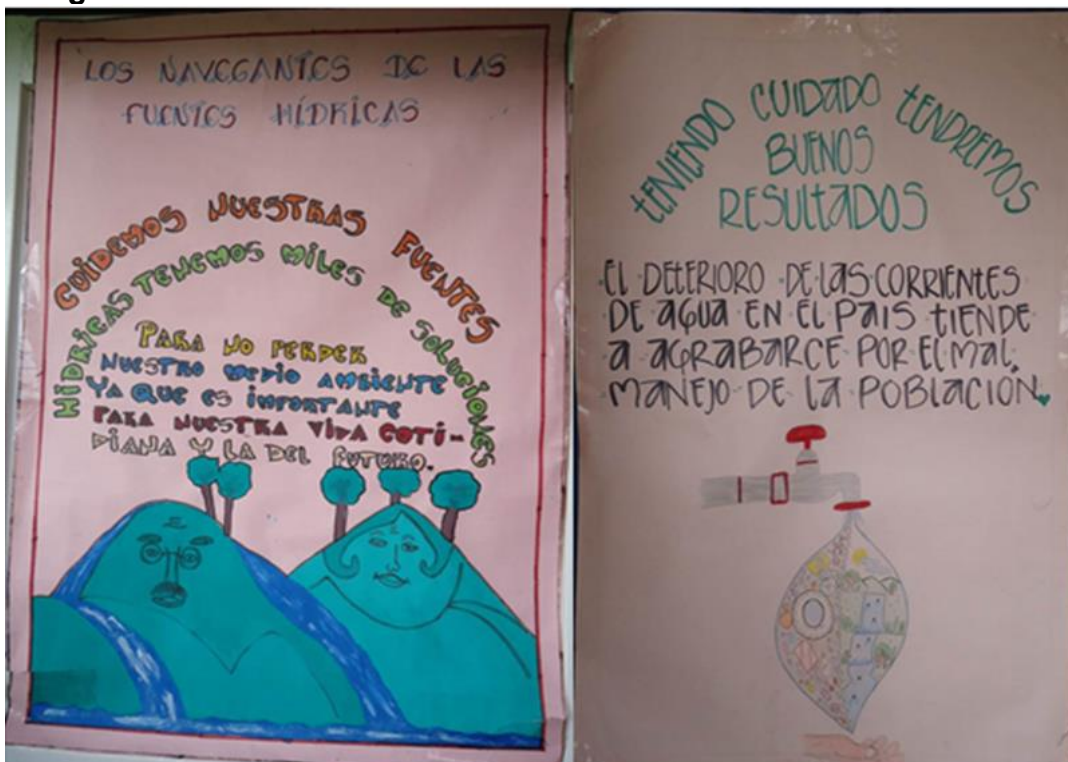 LOS NAVEGANTES DE LAS
FUENTES HÍDRICAS
CUIDEMOS NUESTRAS FUENTES
HÍDRICAS TENEMOS MILES DE SOLUCIONES
PARA NO PERDER
NUESTRO MEDIO AMBIENTE
YA QUE ES IMPORTANTE
PARA NUESTRA VIDA COTI-
DIANA Y LA DEL FUTURO.
TENIENDO CUIDADO TENDREMOS
BUENOS
RESULTADOS
EL DETERIORO DE LAS CORRIENTES
DE AGUA EN EL PAIS TIENDE
A AGRABARCE POR EL MAL,
MANEJO DE LA POBLACION